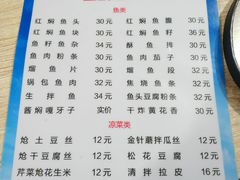 鱼类
红焖鱼头 30元 红焖鱼腹 30元
红焖鱼块 30元 红焖鱼线 30元
鱼籽鱼杂 34元 酥鱼 30元
鱼肉粉条 30元 熘鱼 30元
熘鱼片 30元 熘鱼段 32元
锅包鱼肉 32元 鱼头豆腐粉条 32元
生拌鱼 34元 干炸黄花香 30元
酱焖嘎牙子 实价
凉菜类
炝土豆丝 12元 金针蘑拌瓜丝 12元
炝干豆腐丝 12元 松花豆腐 12元
芹菜炝花生米 12元 清拌拉皮 16元